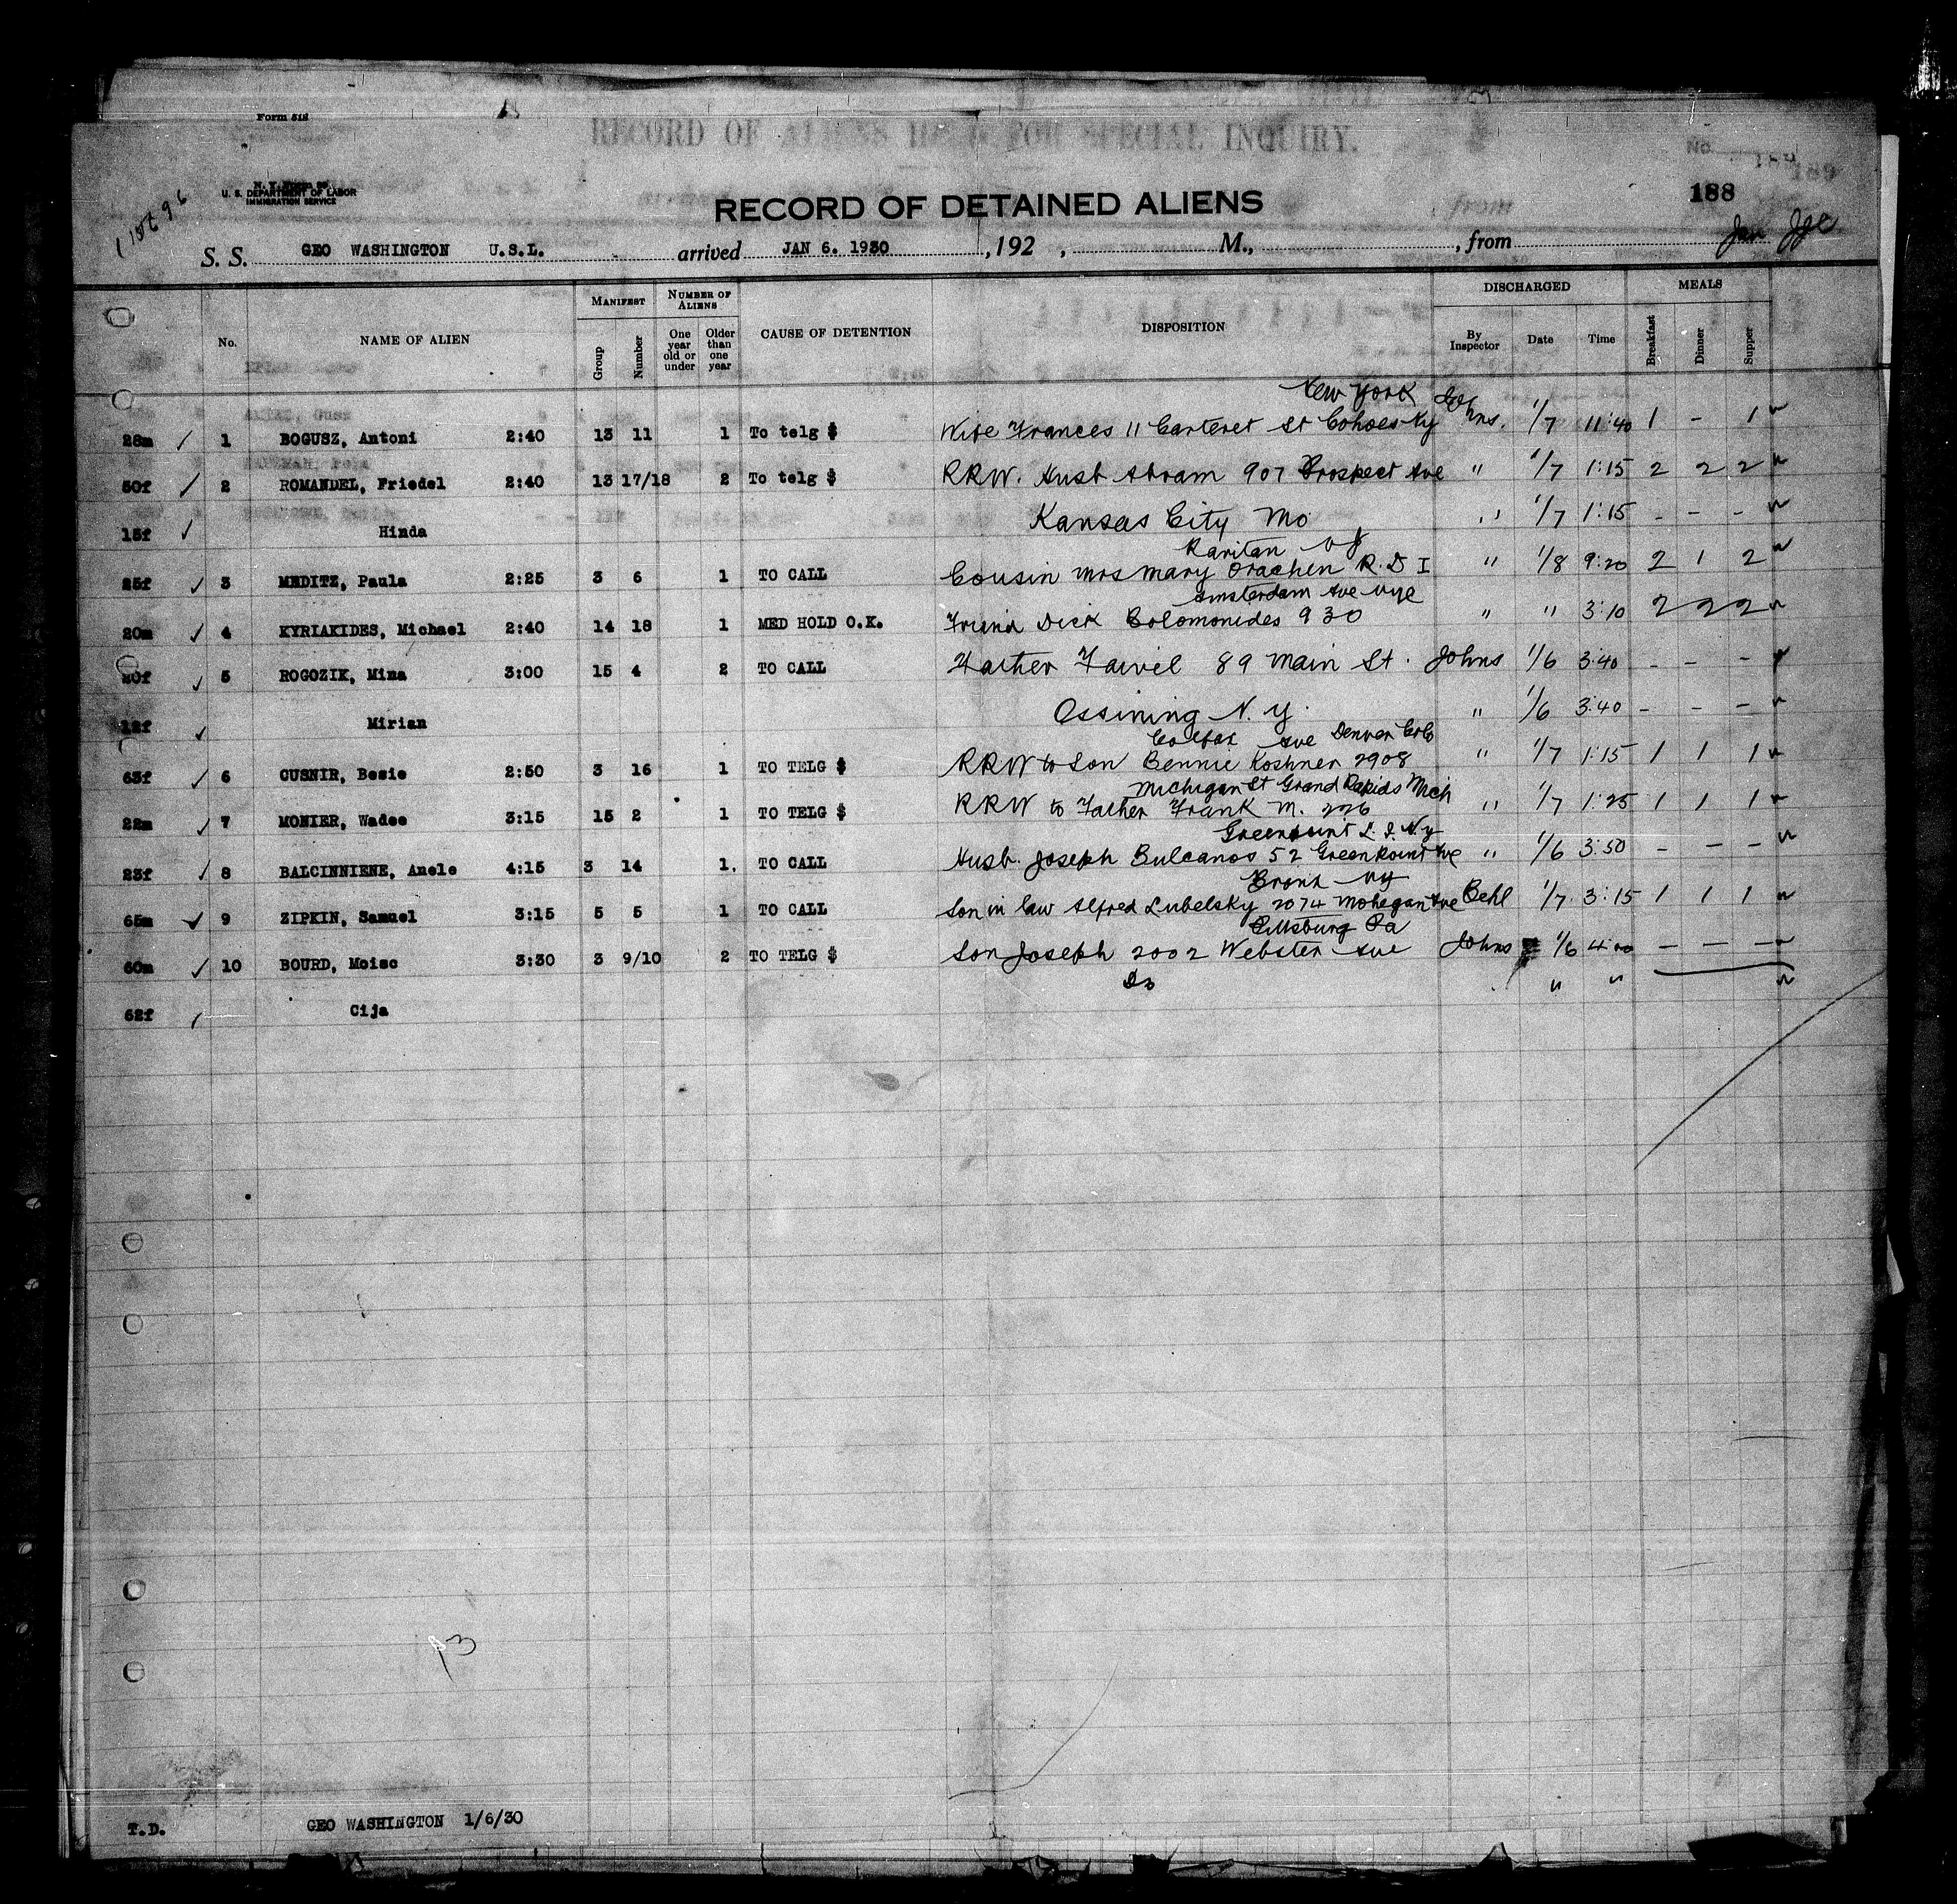 Form 518
RECORD OF ALIENS HELD FOR SPECIAL INQUIRY.
No.
U. S. DEPARTMENT OF LABOR
IMMIGRATION SERVICE
188
RECORD OF DETAINED ALIENS
S. S. GEO WASHINGTON U.S.L. arrived JAN 6. 1930 , 192 , M., , from
No. NAME OF ALIEN MANIFEST Group Number NUMBER OF ALIENS One year old or under Older than one year CAUSE OF DETENTION DISPOSITION DISCHARGED By Inspector Date Time MEALS Breakfast Dinner Supper
New York
28m 1 BOGUSZ, Antoni 2:40 13 11 1 To telg $ Wife Frances 11 Carteret St Cohoes Ny Johns. 1/7 11:40 1 - 1
50f 2 ROMANDEL, Friedel 2:40 13 17/18 2 To telg $ RRW. Husb Abram 907 Prospect Ave " 1/7 1:15 2 2 2
15f Hinda Kansas City Mo " 1/7 1:15 - - -
Raritan NJ
25f 3 MEDITZ, Paula 2:25 3 6 1 TO CALL Cousin Mrs Mary Orachen R.D I " 1/8 9:20 2 1 2
Amsterdam Ave nyc
20m 4 KYRIAKIDES, Michael 2:40 14 18 1 MED HOLD O.K. Friend Dick Colomonides 930 " " 3:10 2 2 2
20f 5 ROGOZIK, Mina 3:00 15 4 2 TO CALL Father Faivel 89 Main St. Johns 1/6 3:40 - - -
12f Mirian Ossining N.Y. " 1/6 3:40 - - -
Colfax Ave Denver Colo
63f 6 CUSNIR, Besie 2:50 3 16 1 TO TELG $ RRW to Son Bennie Koshner 2908 " 1/7 1:15 1 1 1
Michigan St Grand Rapids Mich
22m 7 MONIER, Wadee 3:15 15 2 1 TO TELG $ RRW to Father Frank M. 226 " 1/7 1:25 1 1 1
Greenpoint L.I. N.Y
23f 8 BALCINNIENE, Anele 4:15 3 14 1. TO CALL Husb. Joseph Bulcanos 52 Greenpoint Ave " 1/6 3:50 - - -
Bronx NY
65m 9 ZIPKIN, Samuel 3:15 5 5 1 TO CALL Son in law Alfred Lubelsky 2074 Mohegan Ave Behl 1/7 3:15 1 1 1
Pittsburg Pa
60m 10 BOURD, Moisc 3:30 3 9/10 2 TO TELG $ Son Joseph 2002 Webster Ave Johns 1/6 4:00 - - -
62f Cija Do " "
T.D. GEO WASHINGTON 1/6/30